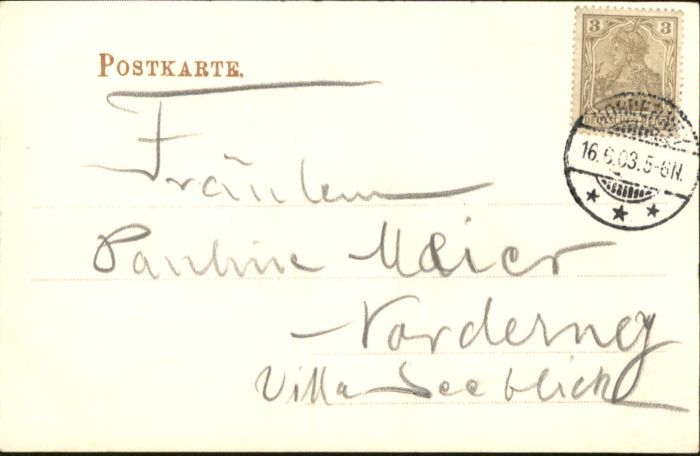 POSTKARTE.
3 3
DEUTSCHES REICH
NORDERNEY
16.6.03.5-6N.
Fräulein
Pauline Meier
Norderney
Villa Seeblick